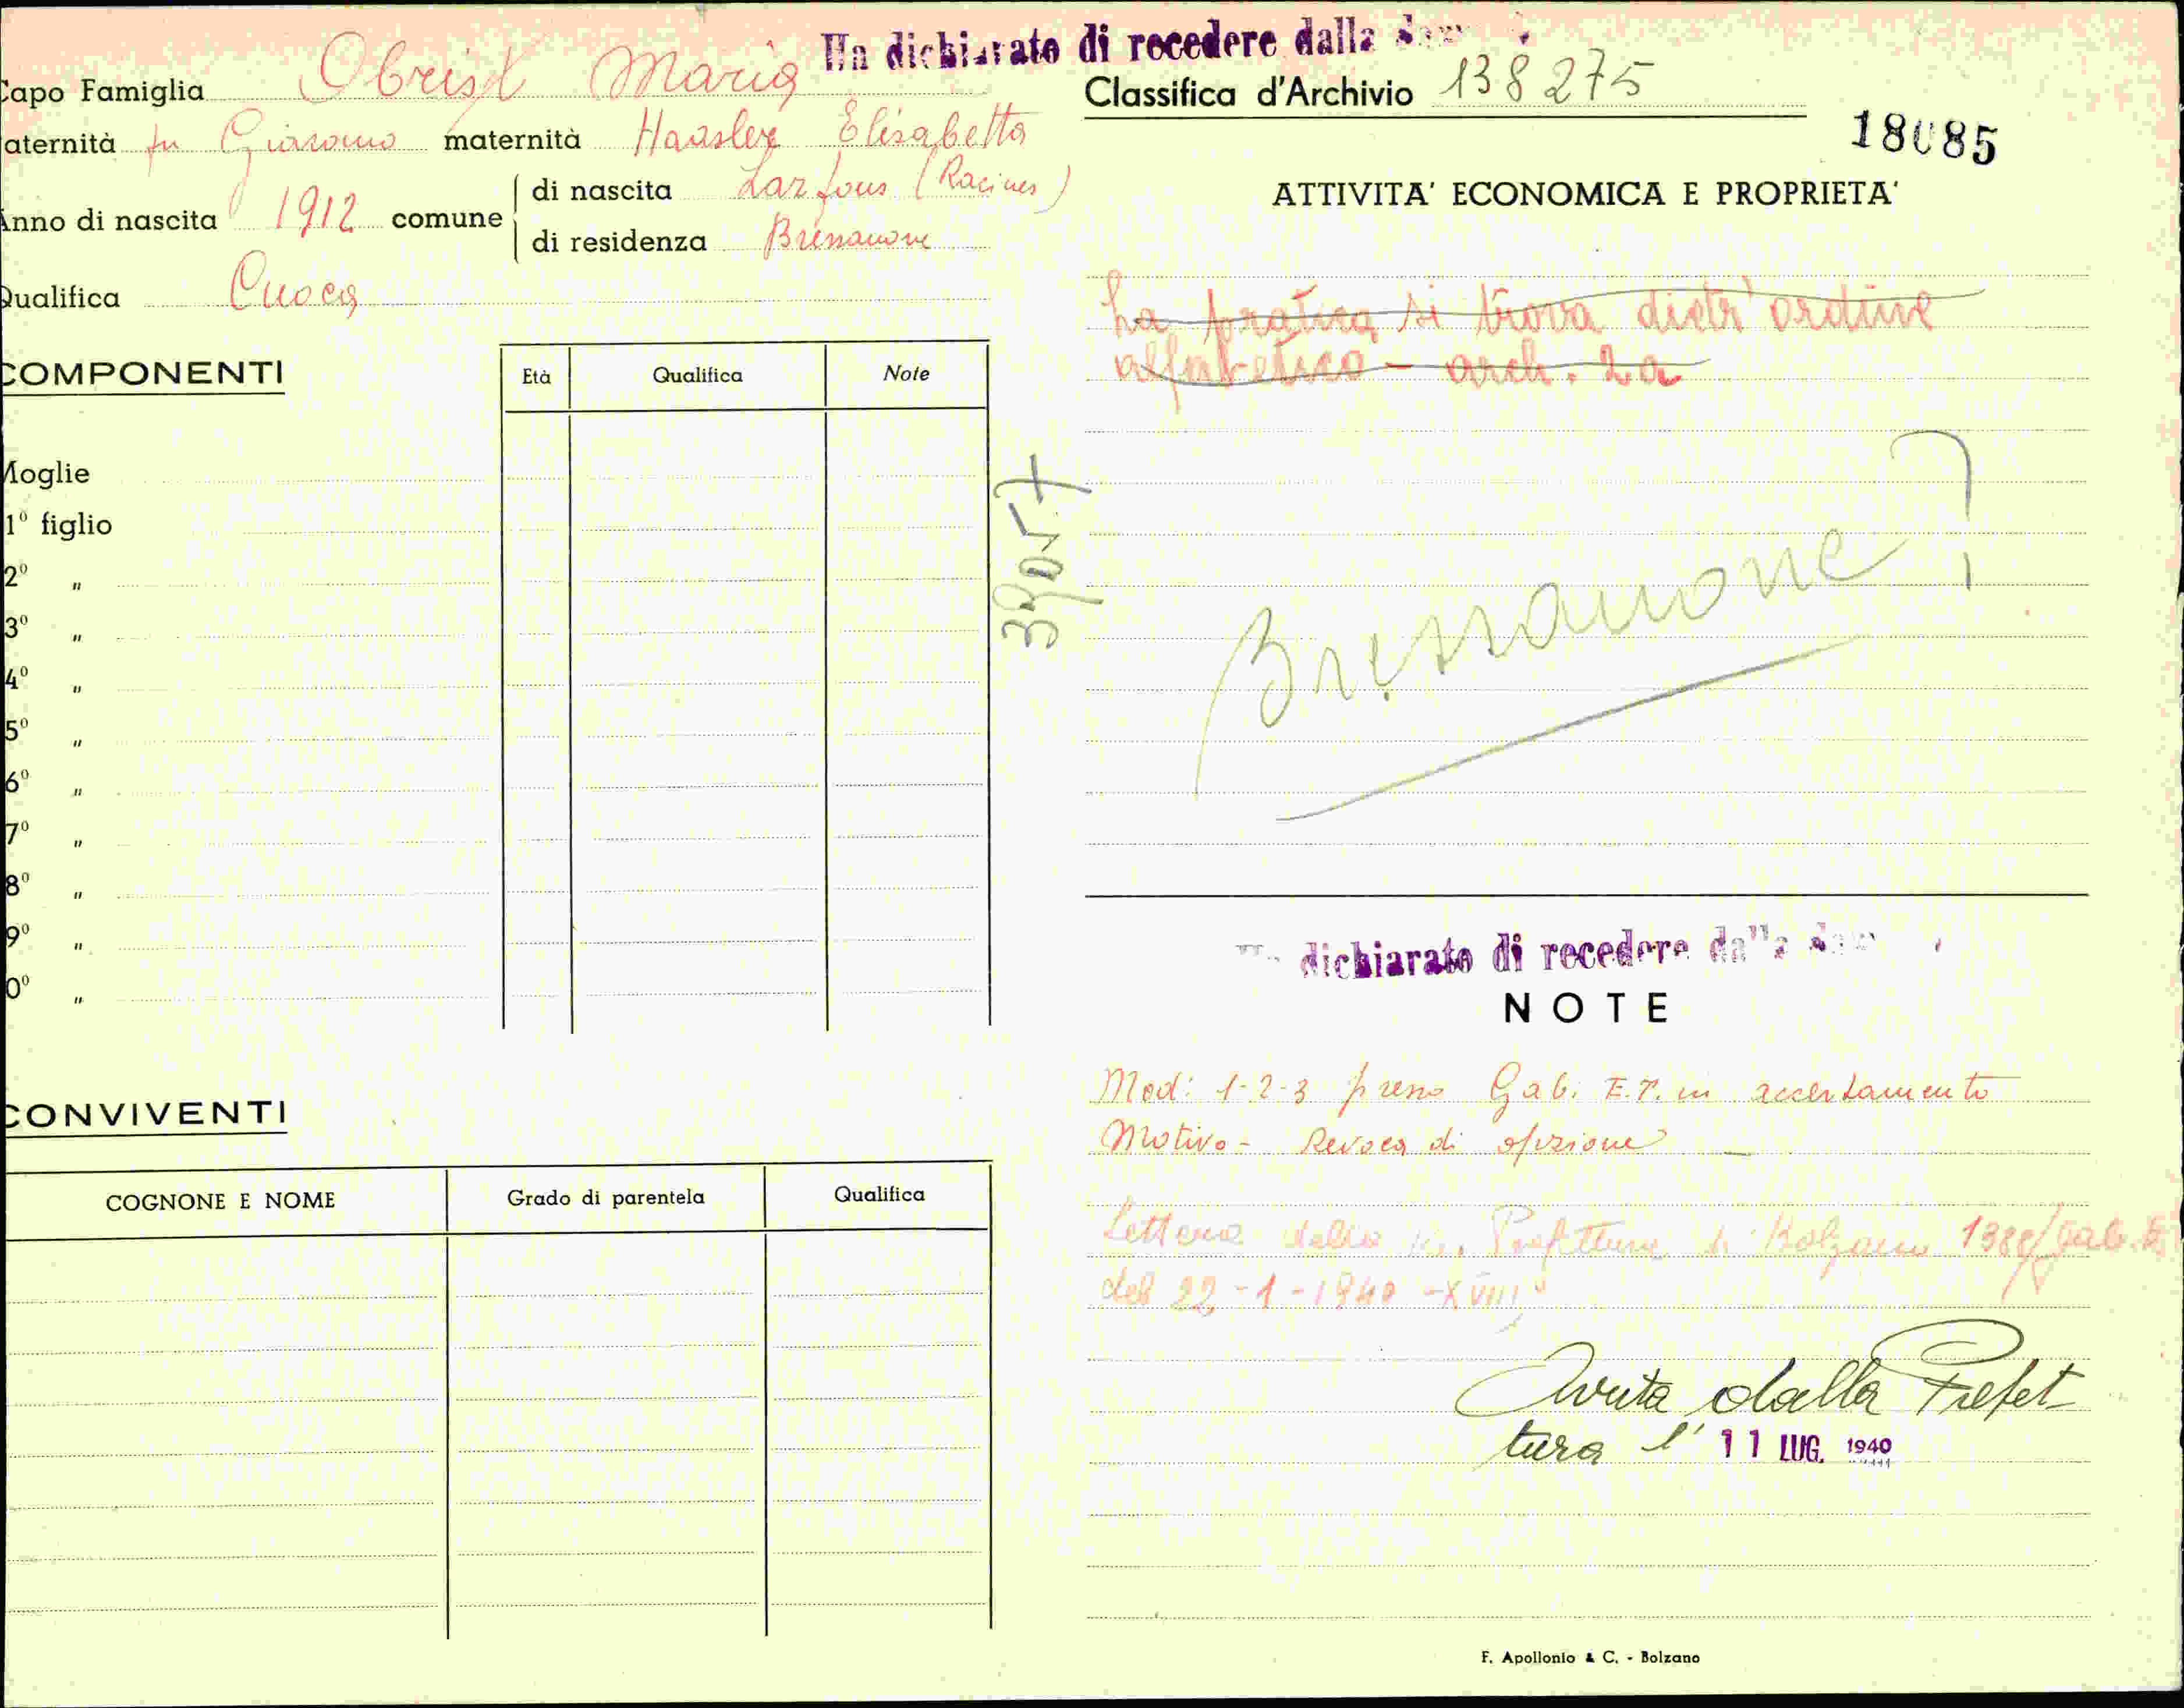 Ha dichiarato di recedere dalla
Capo Famiglia Obrist Maria
aternità fu Giacomo maternità Haasler Elisabetta
Anno di nascita 1912 comune
di nascita (Racines)
di residenza Bressanone
Qualifica Cuoca
COMPONENTI
Età Qualifica Note
Moglie
1º figlio
2º "
3º "
4º "
5º "
6º "
7º "
8º "
9º "
0º "
CONVIVENTI
COGNONE E NOME Grado di parentela Qualifica
Classifica d'Archivio 138275
18085
ATTIVITA' ECONOMICA E PROPRIETA'
La pratica si trova dietr'ordine
alfabetico - arch. 2a
Bressanone
dichiarato di recedere dalla
NOTE
Mod: 1-2-3 presso Gab. E.T. in accertamento
Motivo - Revoca di opzione
Lettera della R. Prefettura di Bolzano Gab.
del 22-1-1940-XVIII
dalla Prefet-
tura l' 11 LUG. 1940
F. Apollonio & C. - Bolzano